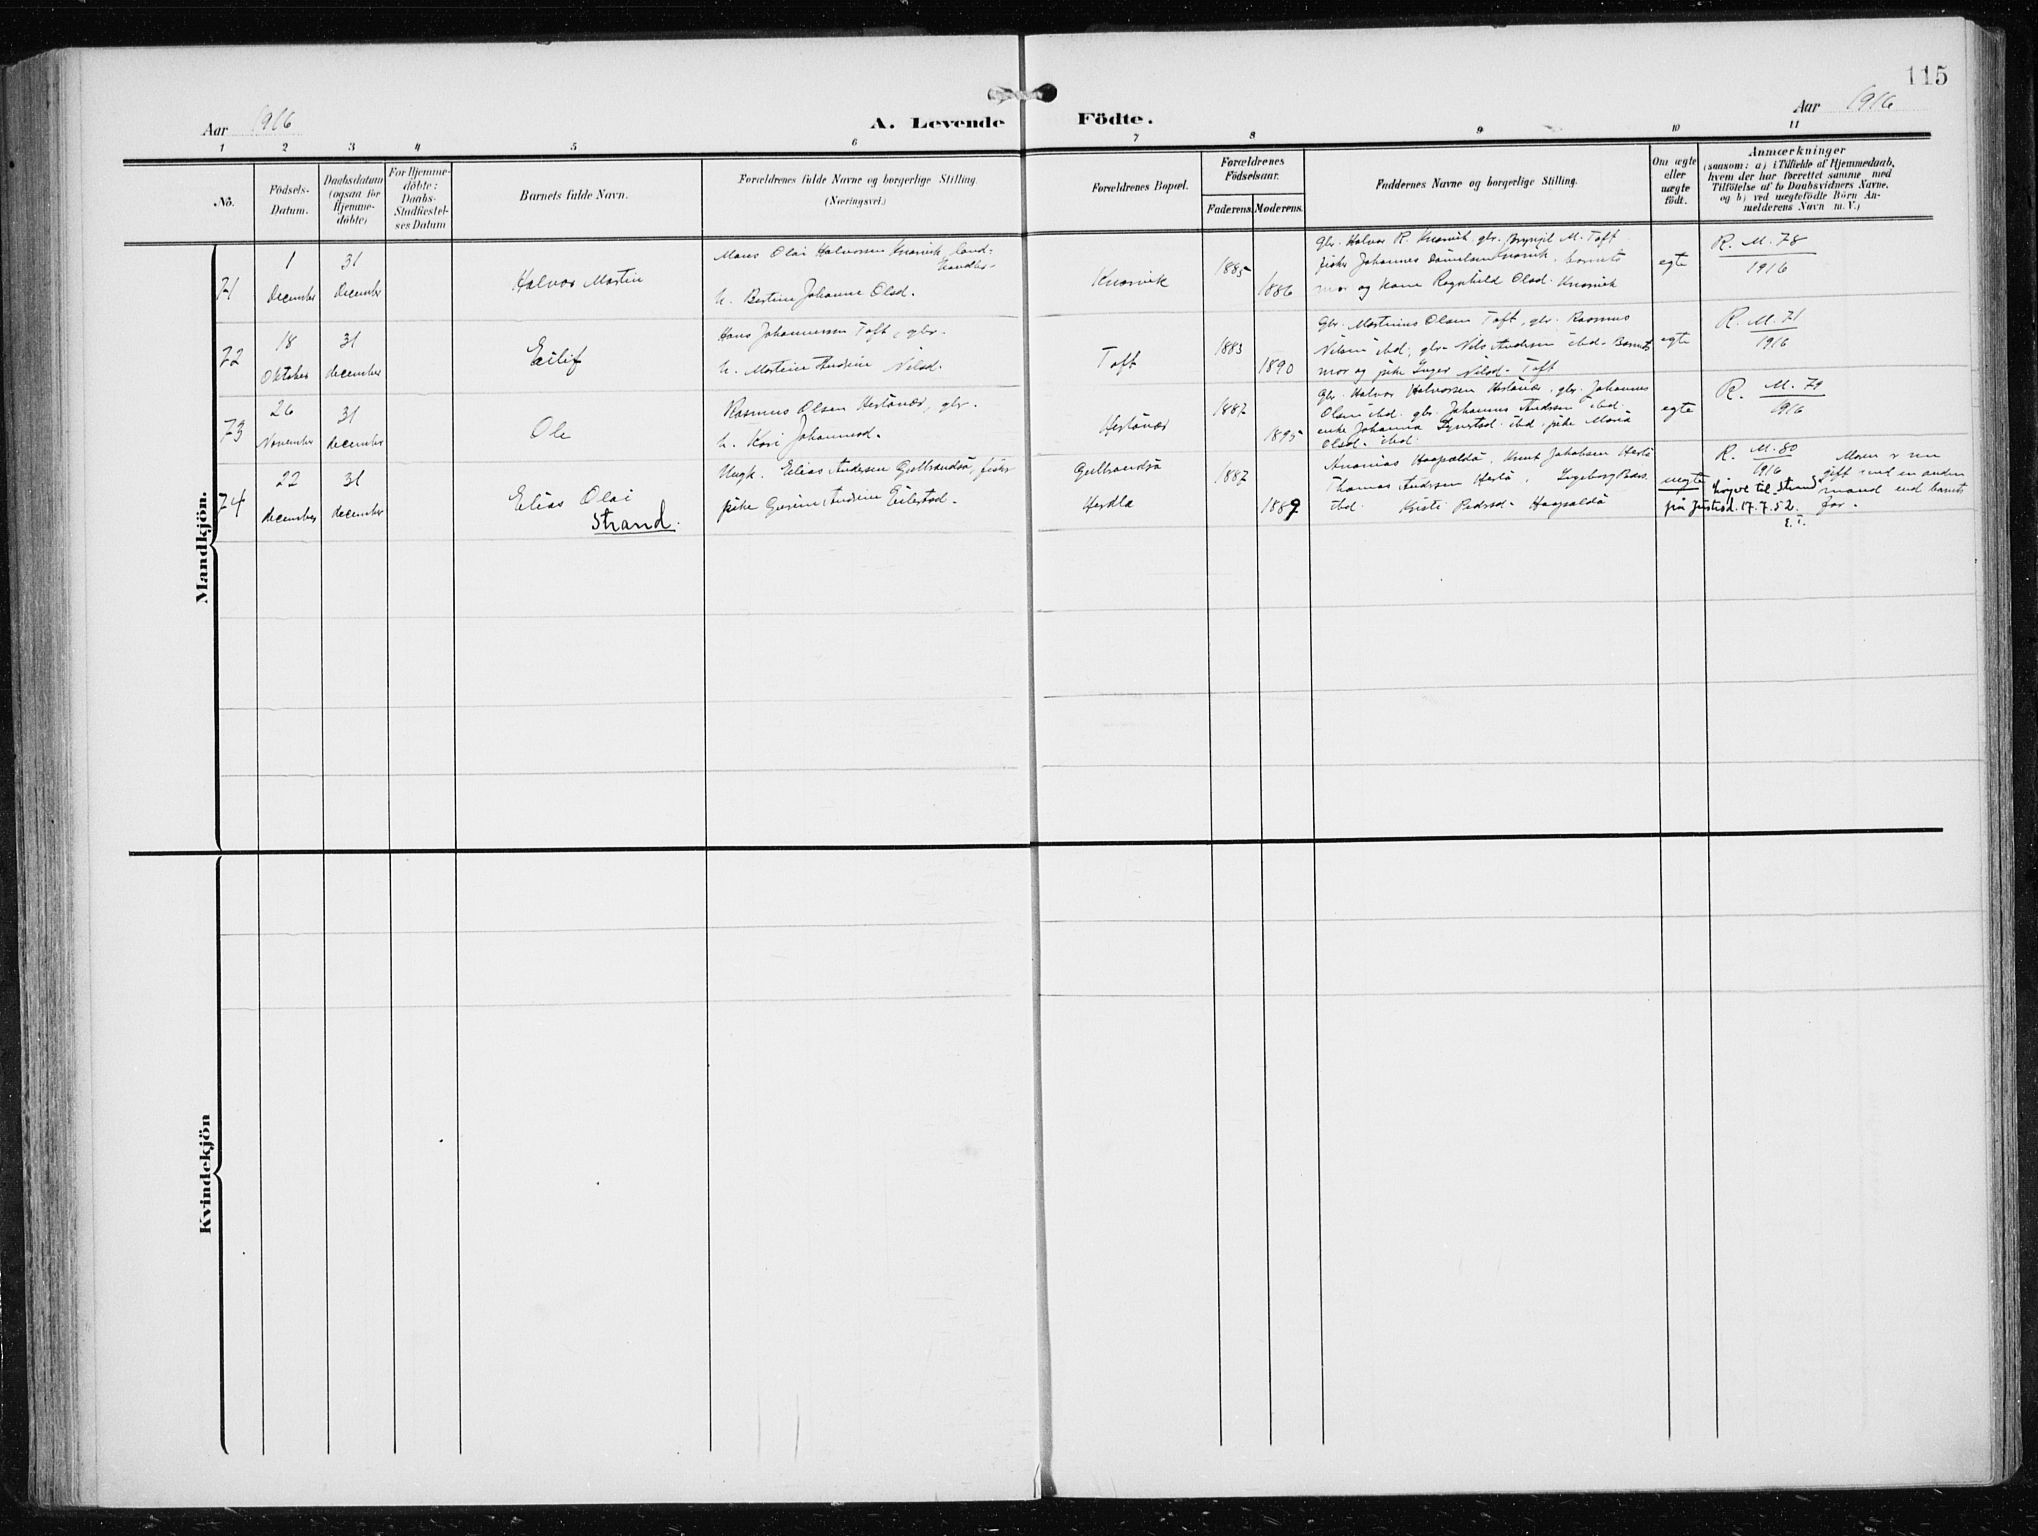 115
Aar 1916
A. Levende Födte.
Aar 1916
1 2 3 4 5 6 7 8 9 10 11
No.
Födsels-
Datum.
Daabsdatum
(ogsaa for
Hjemme-
döbte)
For Hjemme-
döbte:
Daabs-
Stadfæstel-
ses Datum
Barnets fulde Navn.
Forældrenes fulde Navne og borgerlige Stilling.
(Næringsvei.)
Forældrenes Bopæl.
Forældrenes
Födselsaar.
Faderens. Moderens.
Faddernes Navne og borgerlige Stilling.
Om ægte
eller
uægte
födt.
Anmærkninger
(saasom: a) i Tilfælde af Hjemmedaab,
hvem der har forrettet samme med
Tilföielse af to Daabsvidners Navne,
og b) ved uægtefödte Börn An-
melderens Navn m. V.)
Mandkjön.
71
1
December
31
December
Halvor Martin
Mons Olai Halvorsen Knarvik, land-
handler
h. Bertine Johanne Olsd.
Knarvik
1885
1886
gbr. Halvor R. Knarvik, gbr. Brynjel M. Toft
fisker Johannes Danielsen Knarvik, barnets
mor og kone Ragnhild Olsd. Knarvik
egte
R. M. 78
1916
72
18
Oktober
31
december
Eilif
Hans Johannessen Toft, gbr.
h. Martine Andrine Nilsd.
Toft
1883
1890
Gbr. Martinus Olsen Toft, gbr. Rasmus
Nilsen ibd, gbr. Nils Andersen ibd. Barnets
mor og pike Inger Nilsd. Toft
egte
R. M. 71
1916
73
26
November
31
december
Ole
Rasmus Olsen Herlövær, gbr.
h. Kari Johannesd.
Herlövær
1887
1895
Gbr. Halvor Halvorsen Herlövær, gbr. Johannes
Olsen ibd. gbr. Johannes Andersen ibd.
enke Johanna ibd. pike Maria
Olsd. ibd.
egte
R. M. 79
1916
74
22
december
31
december
Elias Olai
Strand.
Ungk. Elias Andersen Gulbrandsö, fisker
pike Gurine Andrine Eilertsd.
Gulbrandsö
Herdla
1887
1889
Ananias Haapoldö, Knut Jakobsen Herlö
Thomas Andersen Herlö, Ingeborg Peders.
ibd. Kristi Pedersd. Haapoldö
uegte
R. M. 80
1916
Moren er nu
gift med en anden
mand end barnets
far.
Löyve til Strand
frå Justisd. 17.7.52.
E.T.
Kvindekjön